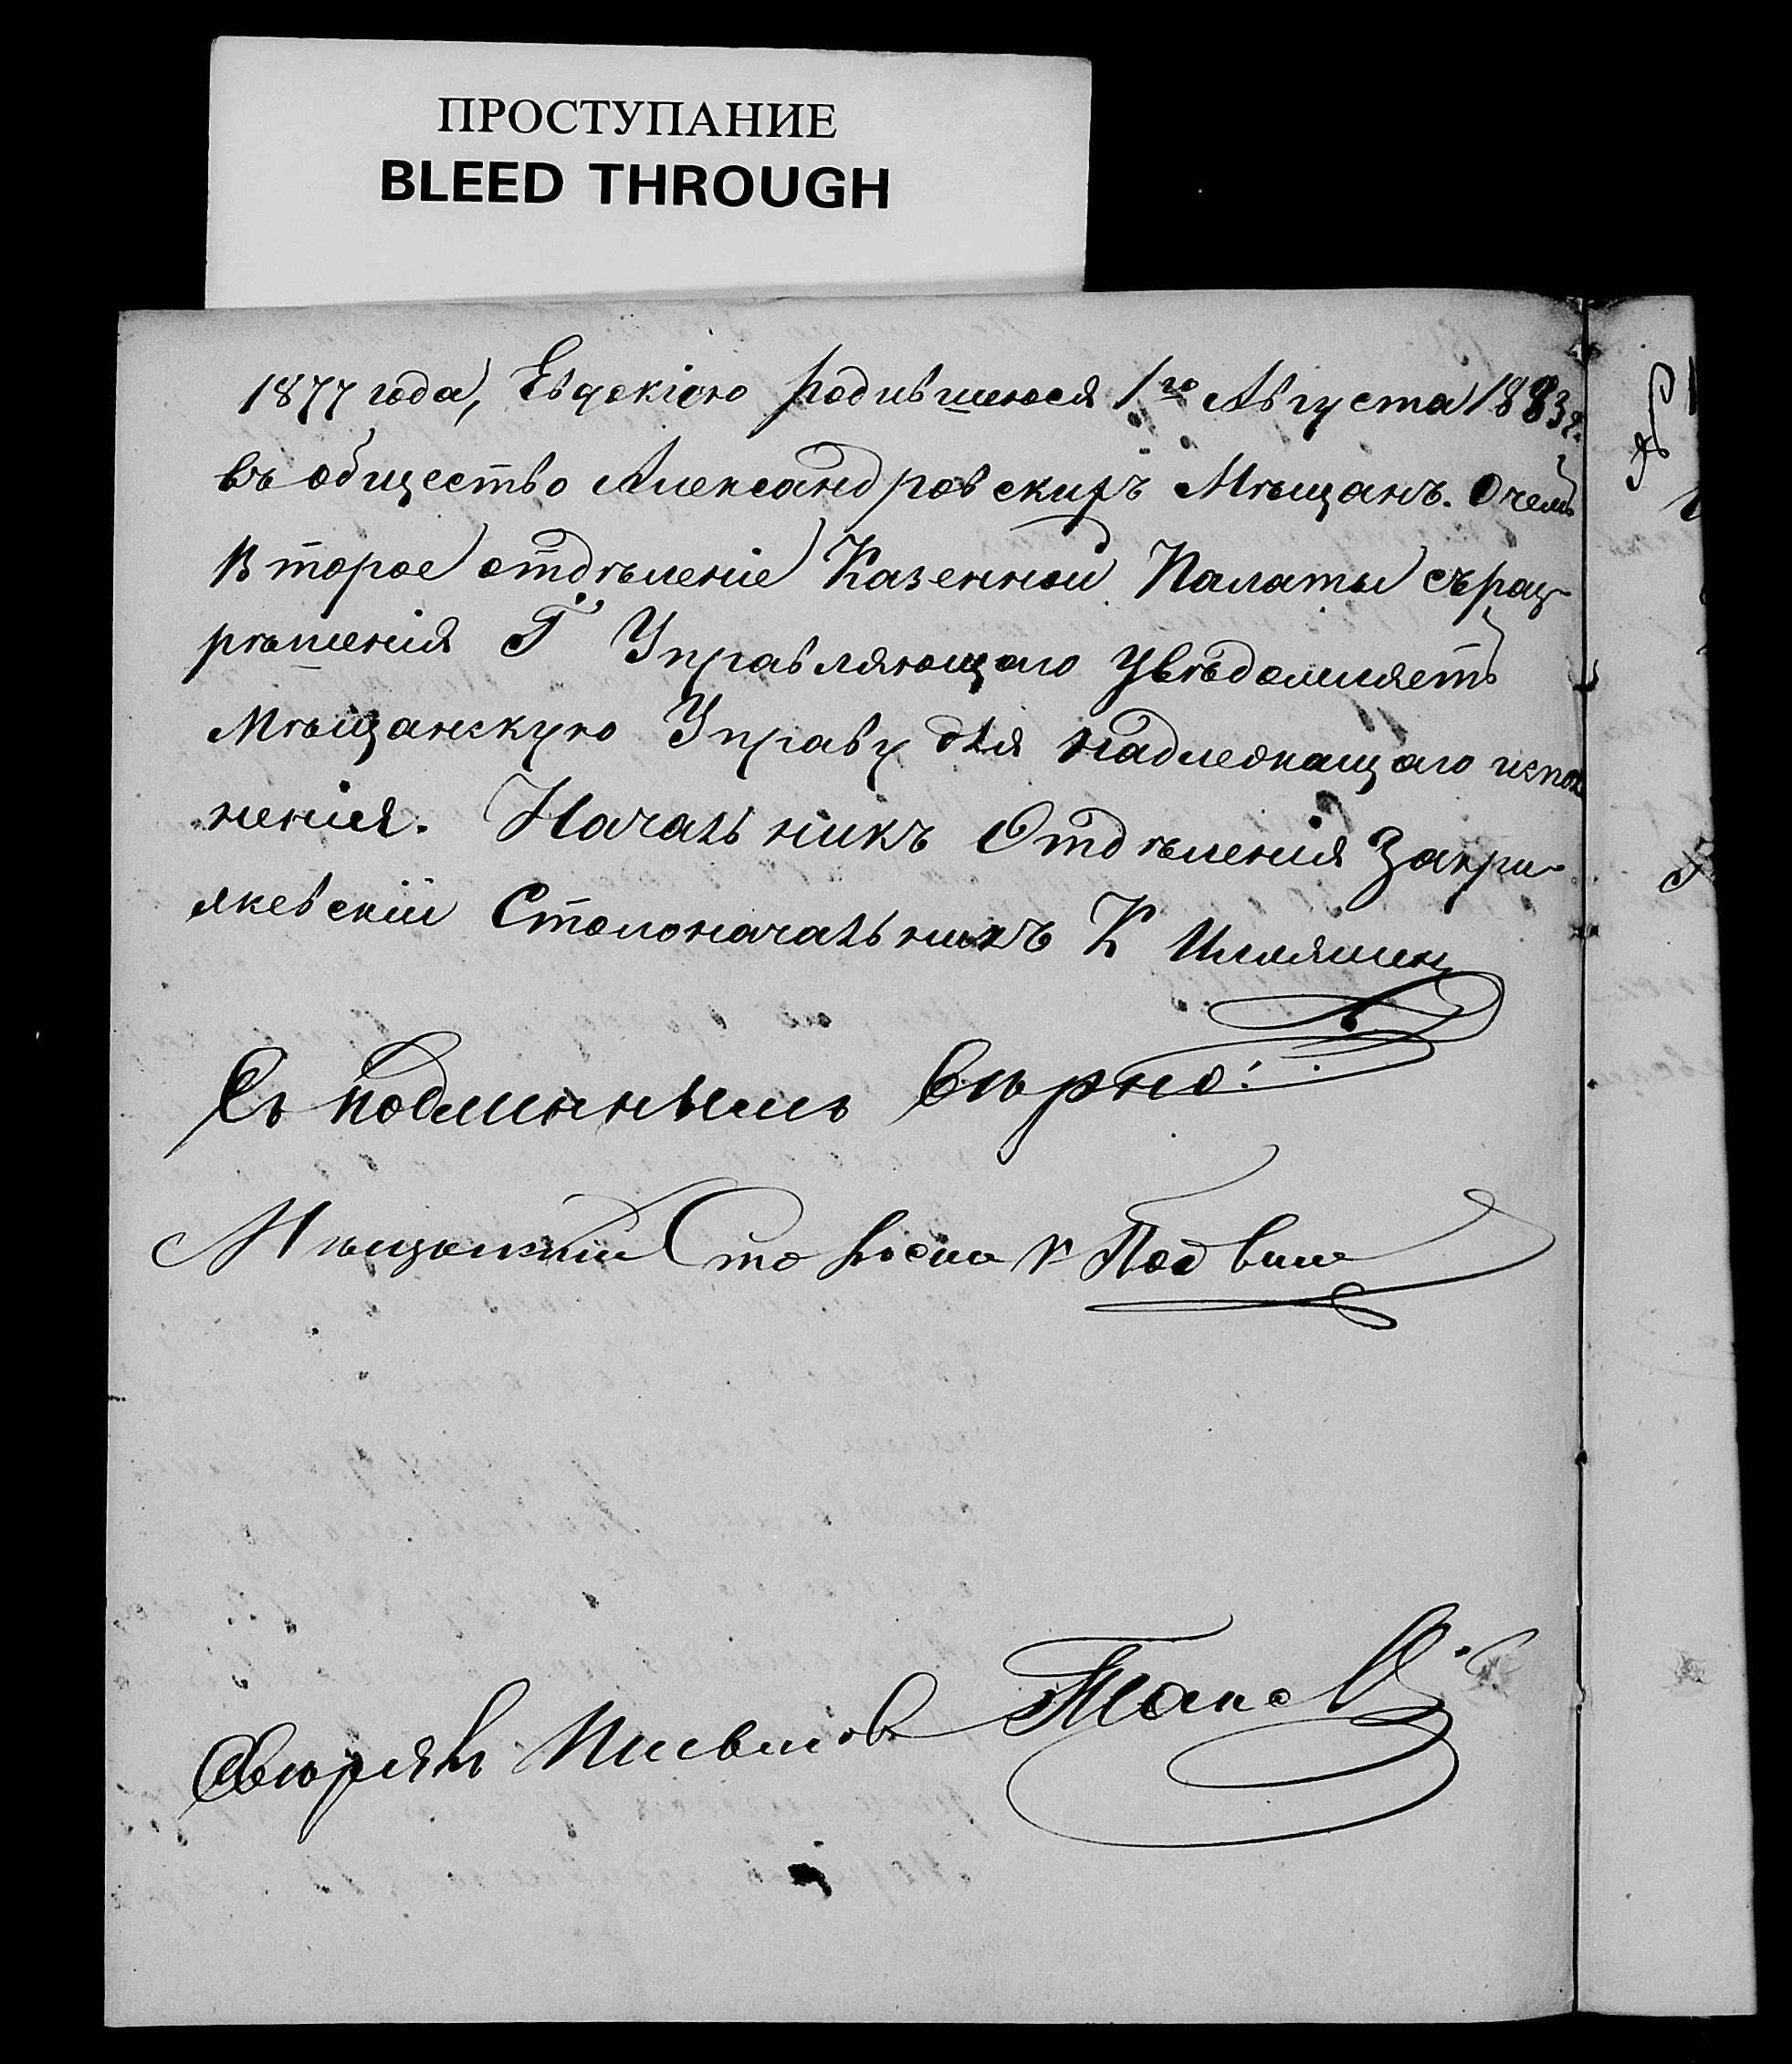 ПРОСТУПАНИЕ
BLEED THROUGH
1877 года, Евдокію родившеюся 1го Августа 1883 г.
въ общество Александровскихъ Мѣщанъ. О чемъ
Второе отдѣленіе Казенной Палаты съ раз-
рѣшенія Г. Управляющаго увѣдомляетъ
Мѣщанскую Управу для надлежащаго испол
ненія. Начальникъ Отдѣленія Закри-
жевскій Столоначальникъ К
Съ подлиннымъ вѣрно:
Мѣщанскій Староста